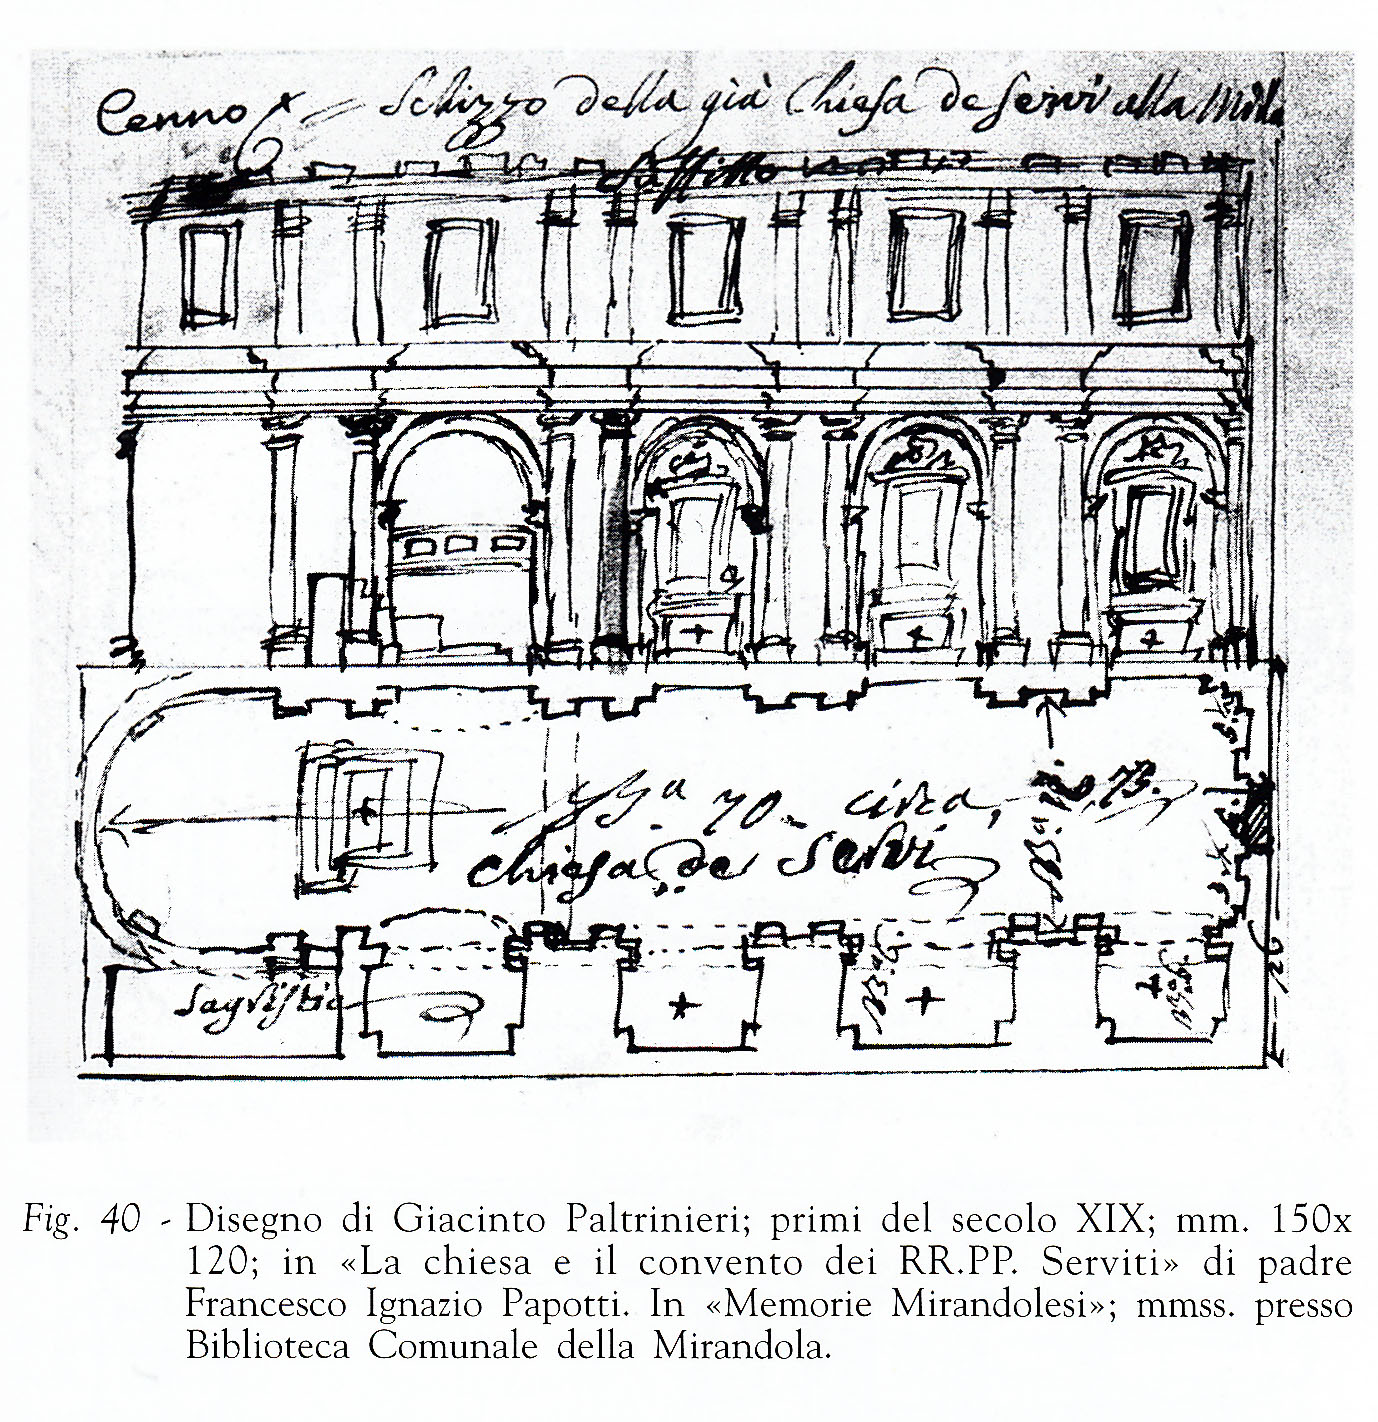 Cenno Schizzo della già Chiesa de Servi alla Mirla
Soffitto
Ba 70 circa,
Chiesa de Servi
Sagristia
Fig. 40 - Disegno di Giacinto Paltrinieri; primi del secolo XIX; mm. 150x
120; in «La chiesa e il convento dei RR.PP. Serviti» di padre
Francesco Ignazio Papotti. In «Memorie Mirandolesi»; mmss. presso
Biblioteca Comunale della Mirandola.